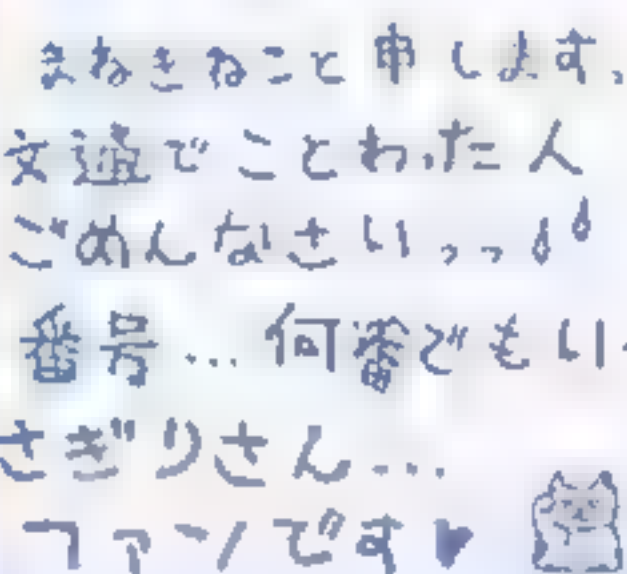 まねきねこと申します、
文通でことわった人
ごめんなさいっっ
番号…何番でもい
さぎりさん…
ファンです♥